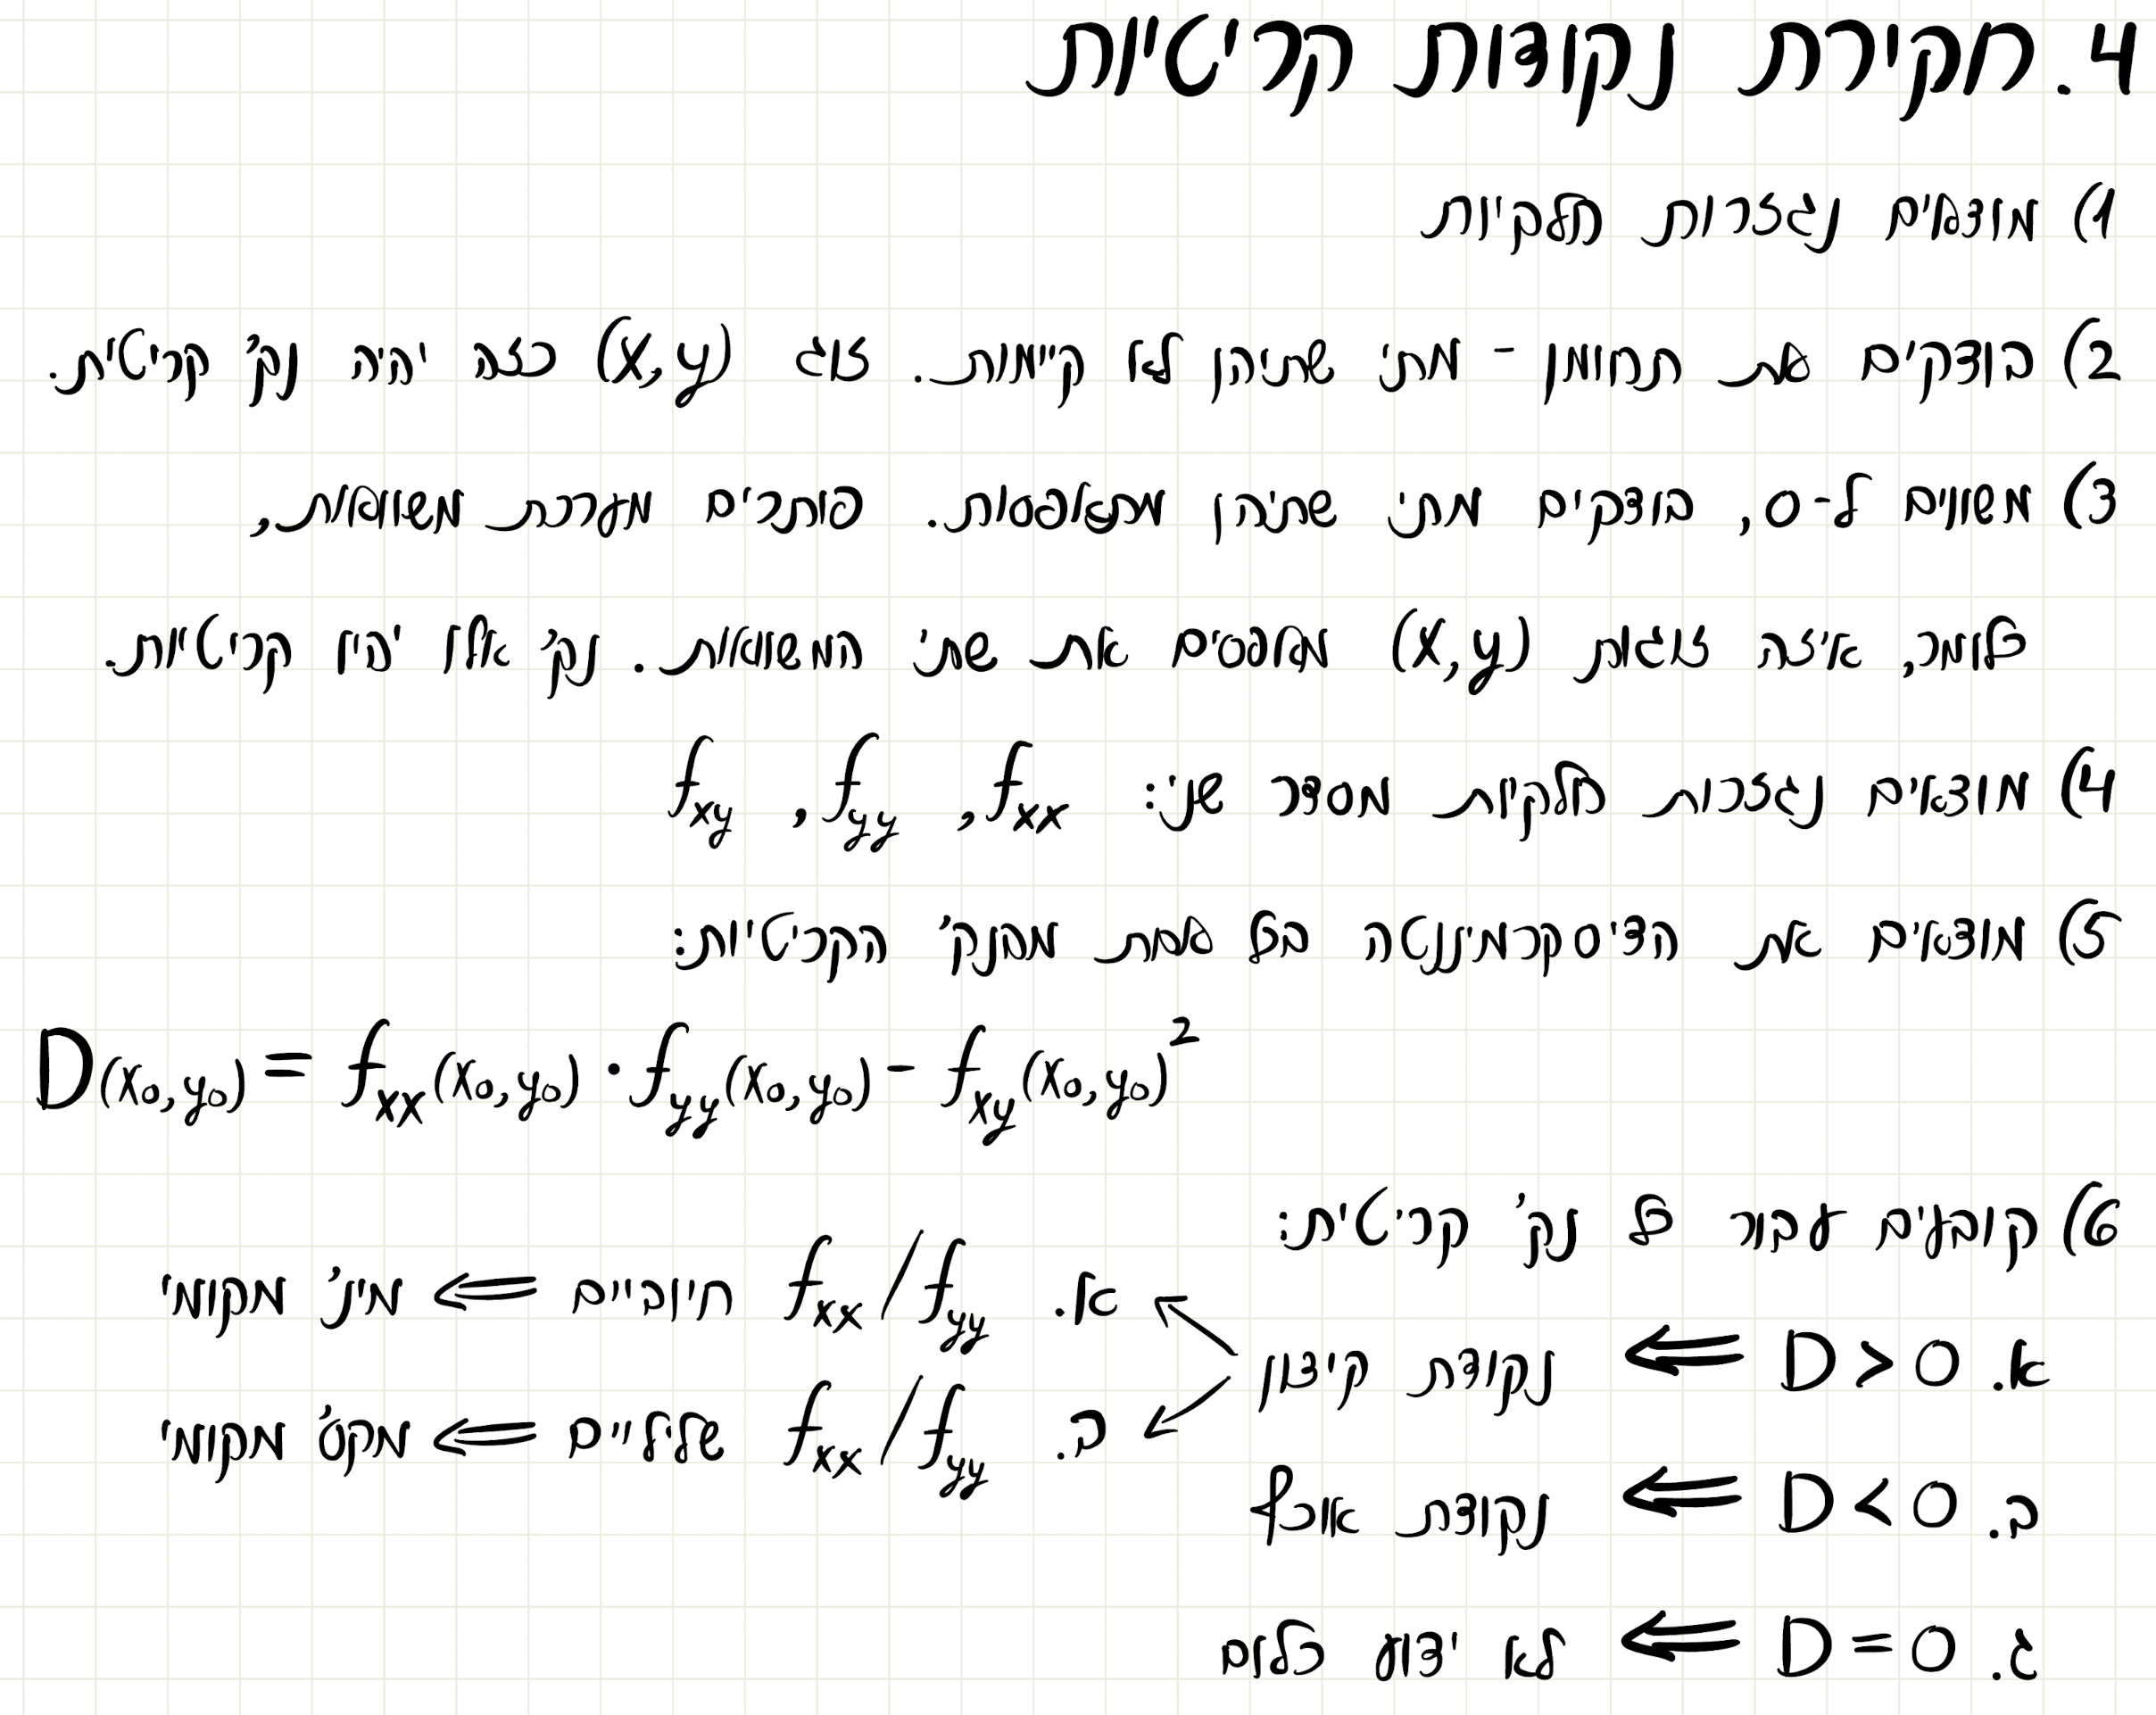 4. חקירת נקודות קריטיות
1) מוצאים נגזרות חלקיות
2) בודקים את תחומן - מתי שתיהן לא קיימות. זוג (x,y) כזה יהיה נק' קריטית.
3) משווים ל-0, בודקים מתי שתיהן מתאפסות. פותרים מערכת משוואות,
כלומר, איזה זוגות (x,y) מאפסים את שתי המשוואות. נק' אלו יהיו קריטיות.
4) מוצאים נגזרות חלקיות מסדר שני: f_xx, f_yy, f_xy
5) מוצאים את הדיסקרמיננטה בכל אחת מהנק' הקריטיות:
D(x₀,y₀) = f_xx(x₀,y₀) · f_yy(x₀,y₀) - f_xy(x₀,y₀)²
6) קובעים עבור כל נק' קריטית:
א. D > 0 ⇐ נקודת קיצון
א. f_xx/f_yy חיוביים ⇐ מינ' מקומי
ב. f_xx/f_yy שליליים ⇐ מקס' מקומי
ב. D < 0 ⇐ נקודת אוכף
ג. D = 0 ⇐ לא ידוע כלום